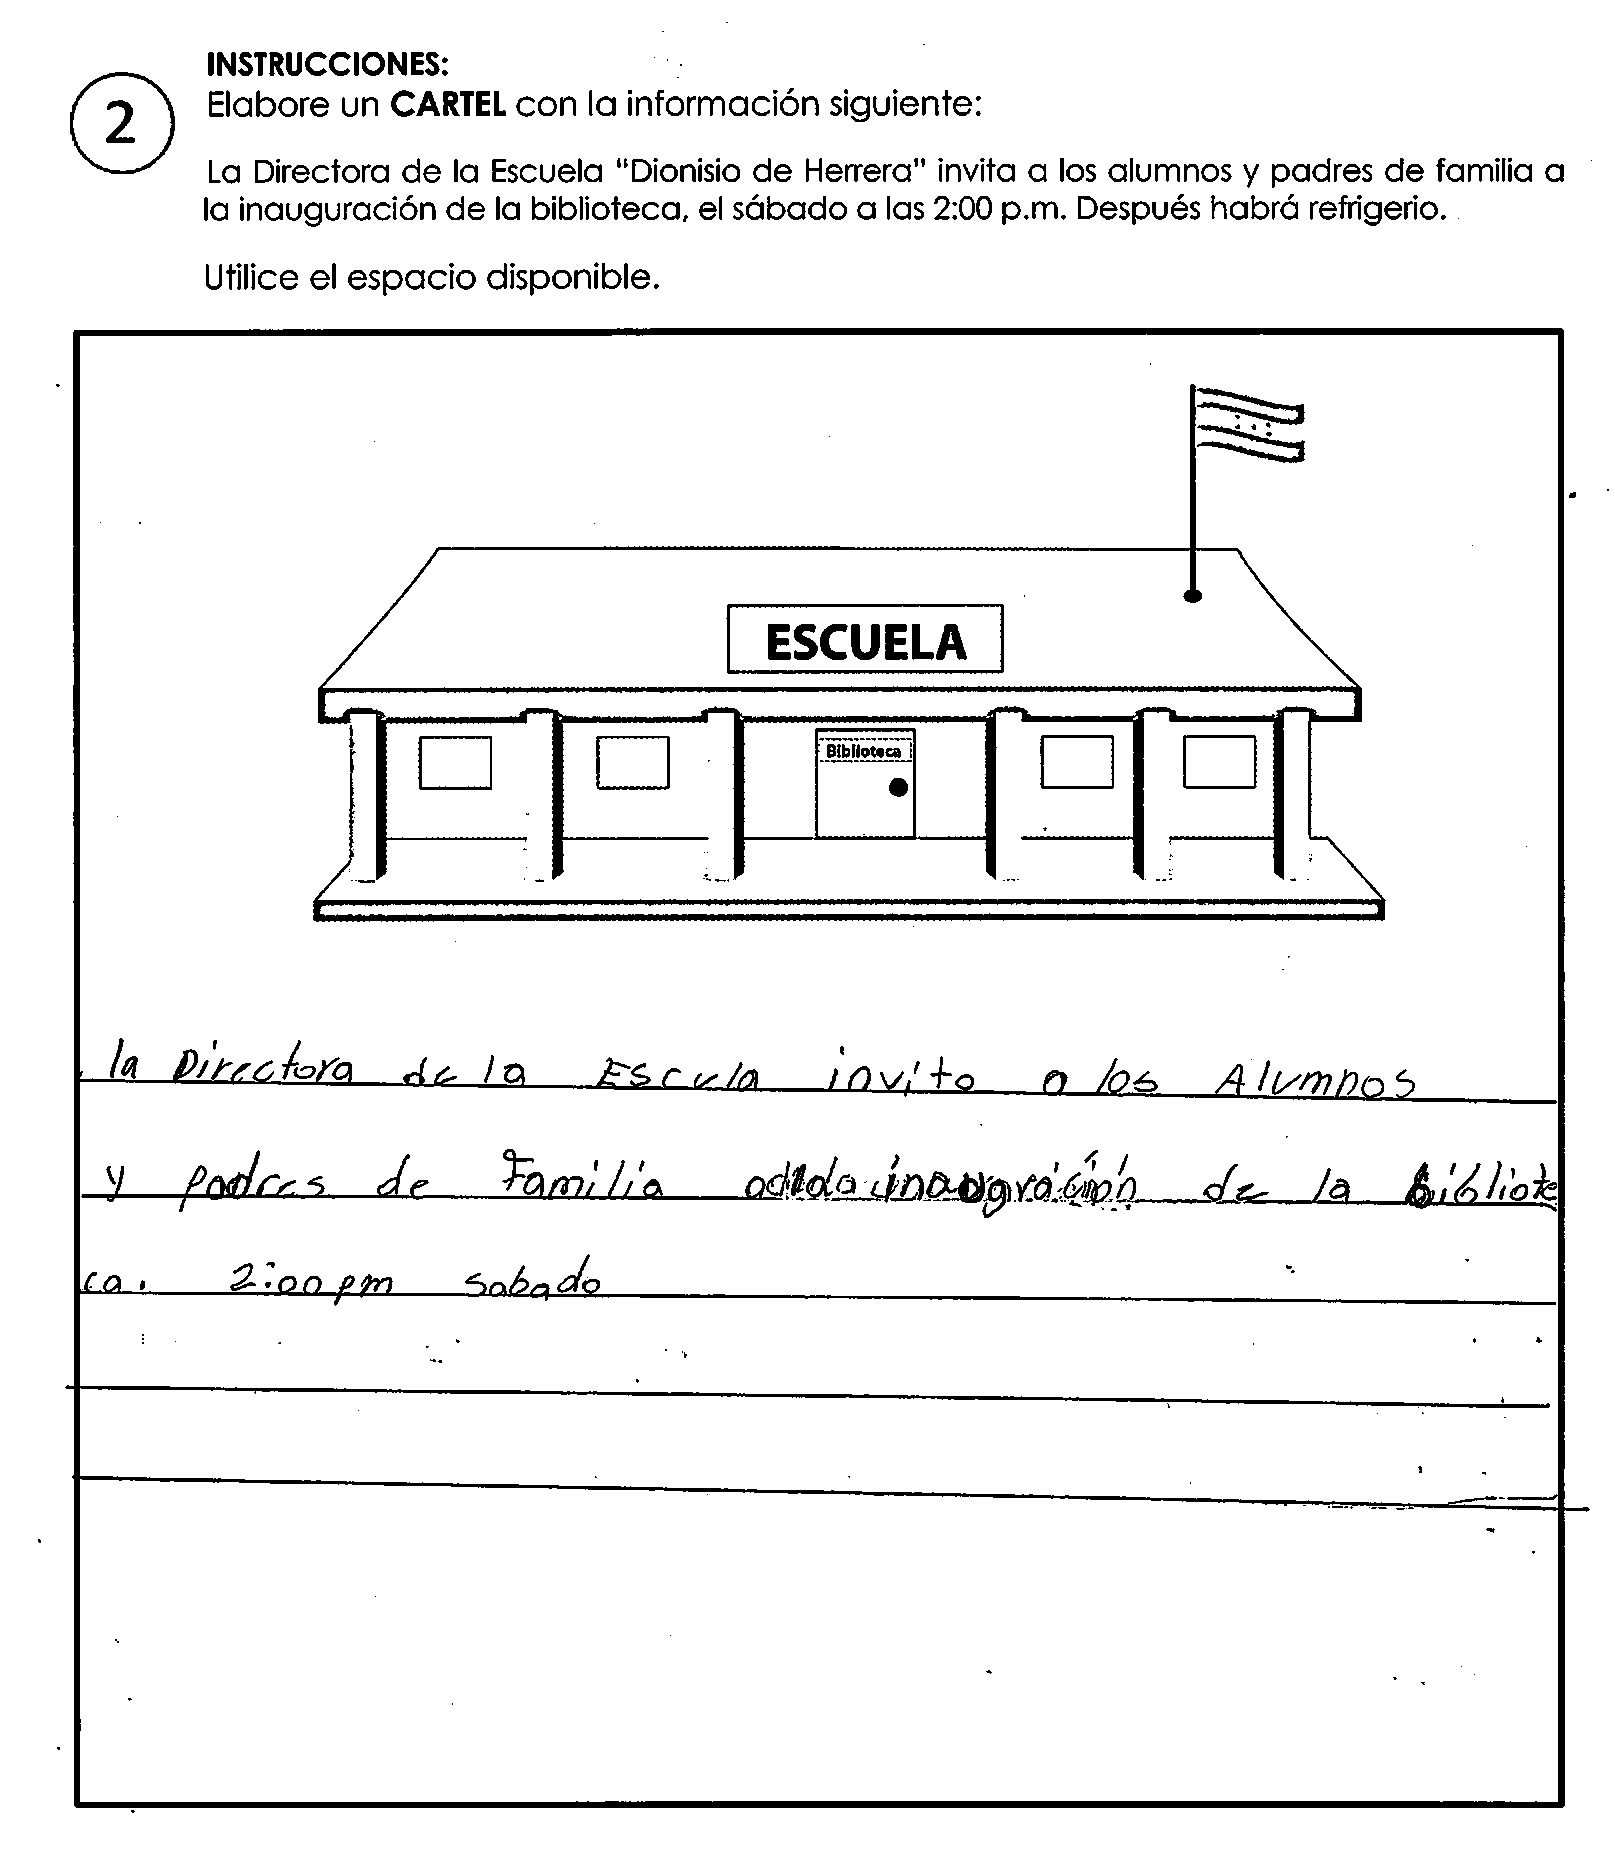 INSTRUCCIONES:
2
Elabore un CARTEL con la información siguiente:
La Directora de la Escuela "Dionisio de Herrera" invita a los alumnos y padres de familia a
la inauguración de la biblioteca, el sábado a las 2:00 p.m. Después habrá refrigerio.
Utilice el espacio disponible.
ESCUELA
Biblioteca
la Directora de la Escula invita a los Alumnos
y padres de Familia de la bibliote
ca. 2:00 pm sabado